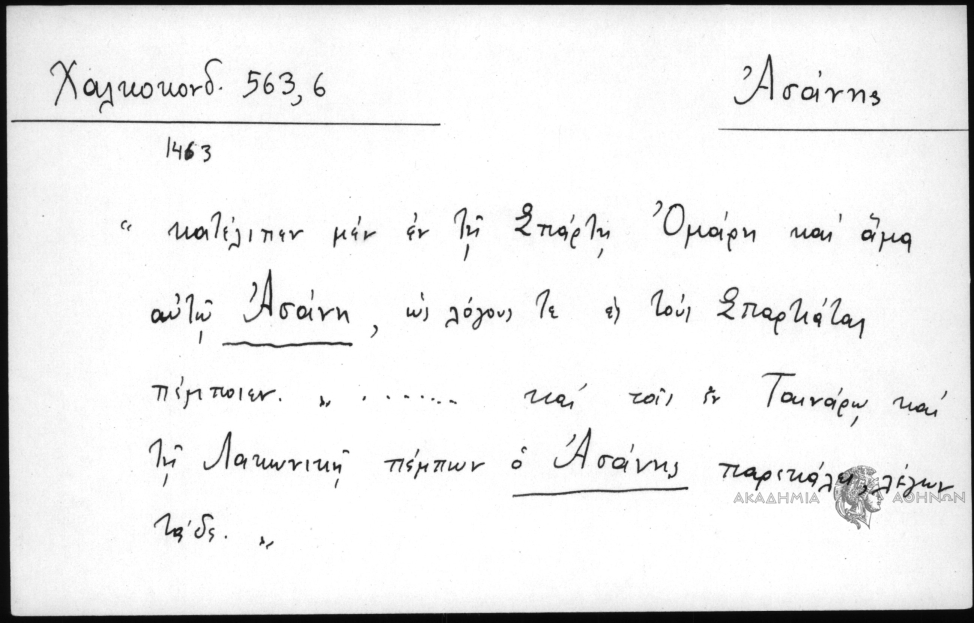 Χαλκοκονδ. 563,6
Ἀσάνης
1463
“ κατέλιπεν μέν ἐν τῇ Σπάρτῃ Ὀμάρη καί ἅμα
αὐτῷ Ἀσάνη, ὡς λόγους τε ἐς τούς Σπαρτιάτας
πέμποιεν. „ ....... καί τοῖς ἐν Ταινάρῳ καί
τῇ Λακωνικῇ πέμπων ὁ Ἀσάνης παρεκάλει, λέγων
τάδε. „
ΑΚΑΔΗΜΙΑ ΑΘΗΝΩΝ